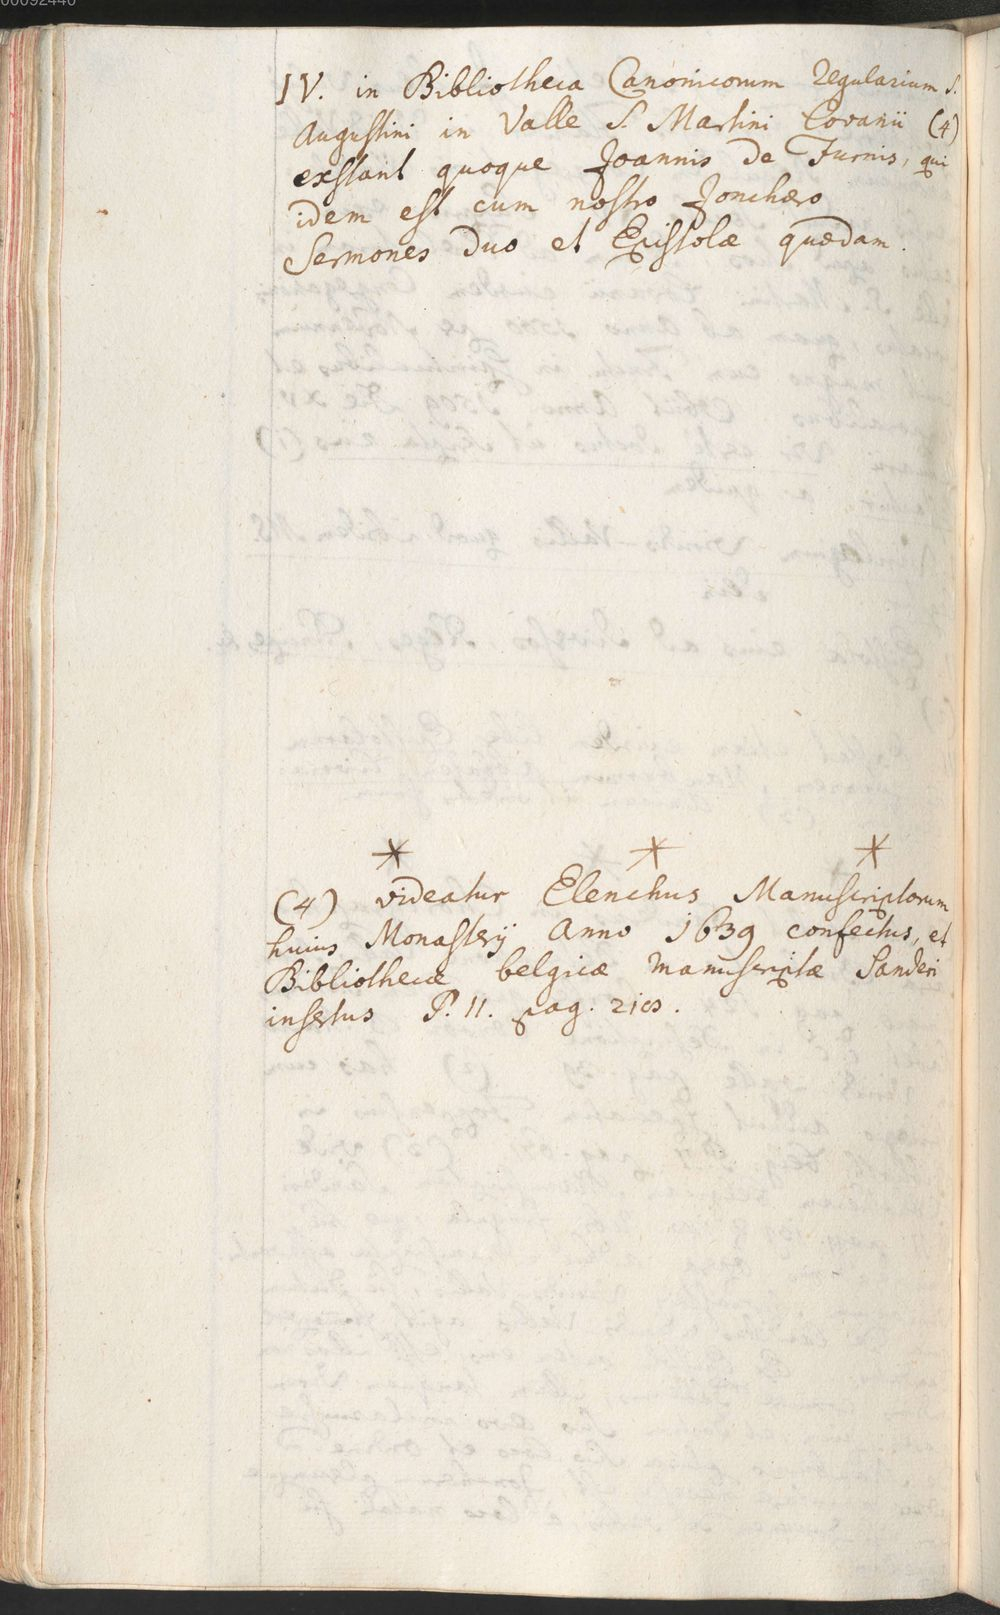 00092440
IV. in Bibliotheca Canonicorum Regularium S.
Augustini in Valle S. Martini Lovanii (4)
exstant quoque Joannis de Furnis, qui
idem est cum nostro Jonchæro
Sermones duo et Epistolæ quædam.
(4) videatur Elenchus Manuscriptorum
huius Monasterij Anno 1639 confectus, et
Bibliothecæ belgicæ manuscriptæ Sanderi
insertus P. II. pag.